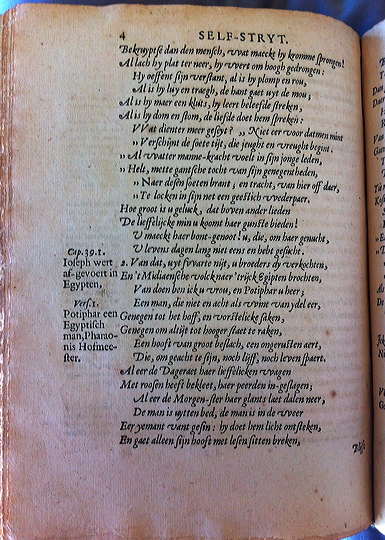 4 SELF-STRYT.
Bekruyptse dan den mensch, vvat maeckt hy kromme sprongen!
Al lach hy plat ter neer, hy vvert om hoogh gedrongen:
Hy oeffent sijn verstant, al is hy plomp en rou,
Al is hy luy en traegh, de hant gaet uyt de mou;
Al is hy maer een kluits, hy leert beleefde streken,
Al is hy dom en stom, de liefde doet hem spreken:
VVat dienter meer geseyt? „ Niet eer voor datmen mint
„ Verschijnt de soete tijt, die jeught en vreught begint.
„ Al vvatter manne-kracht voelt in sijn jonge leden,
„ Helt, mette gantsche tocht van sijn genegentheden,
„ Naer desen soeten brant; en tracht, van hier off daer,
„ Te locken in sijn net een geestich vvederpaer.
Hoe groot is u geluck, dat boven ander lieden
De lieffelijcke min u koomt haer gunste bieden!
U maeckt haer bont-genoot! u, die, om haer genucht,
U levens dagen lang niet eens en hebt gesucht.
Cap. 39.1.
Ioseph wert
af-gevoert in
Egypten.
2. Van dat, uyt svvarte nijt, u broeders dy verkochten,
En 't Midiaensche volck naer 'trijck Egipten brochten,
Vers. 1.
Potiphar een
Egyptisch
man, Pharao-
nis Hofmee-
ster.
Van doen ben ick u vrou, en Potiphar u heer;
Een man, die niet en acht als vvint van ydel eer,
Genegen tot het hoff, en vorstelicke saken,
Genegen om altijt tot hooger staet te raken,
Een hooft van groot beslach, een ongerusten aert,
Die, om geacht te sijn, noch lijff, noch leven spaert.
Al eer de Dageraet haer lieffelicken vvagen
Met roosen heeft bekleet, haer peerden in-geslagen;
Al eer de Morgen-ster haer glants laet dalen neer,
De man is uytten bed, de man is in de vveer
Eer yemant vvant gesin: hy doet hem licht ontsteken,
En gaet alleen sijn hooft met lesen sitten breken,